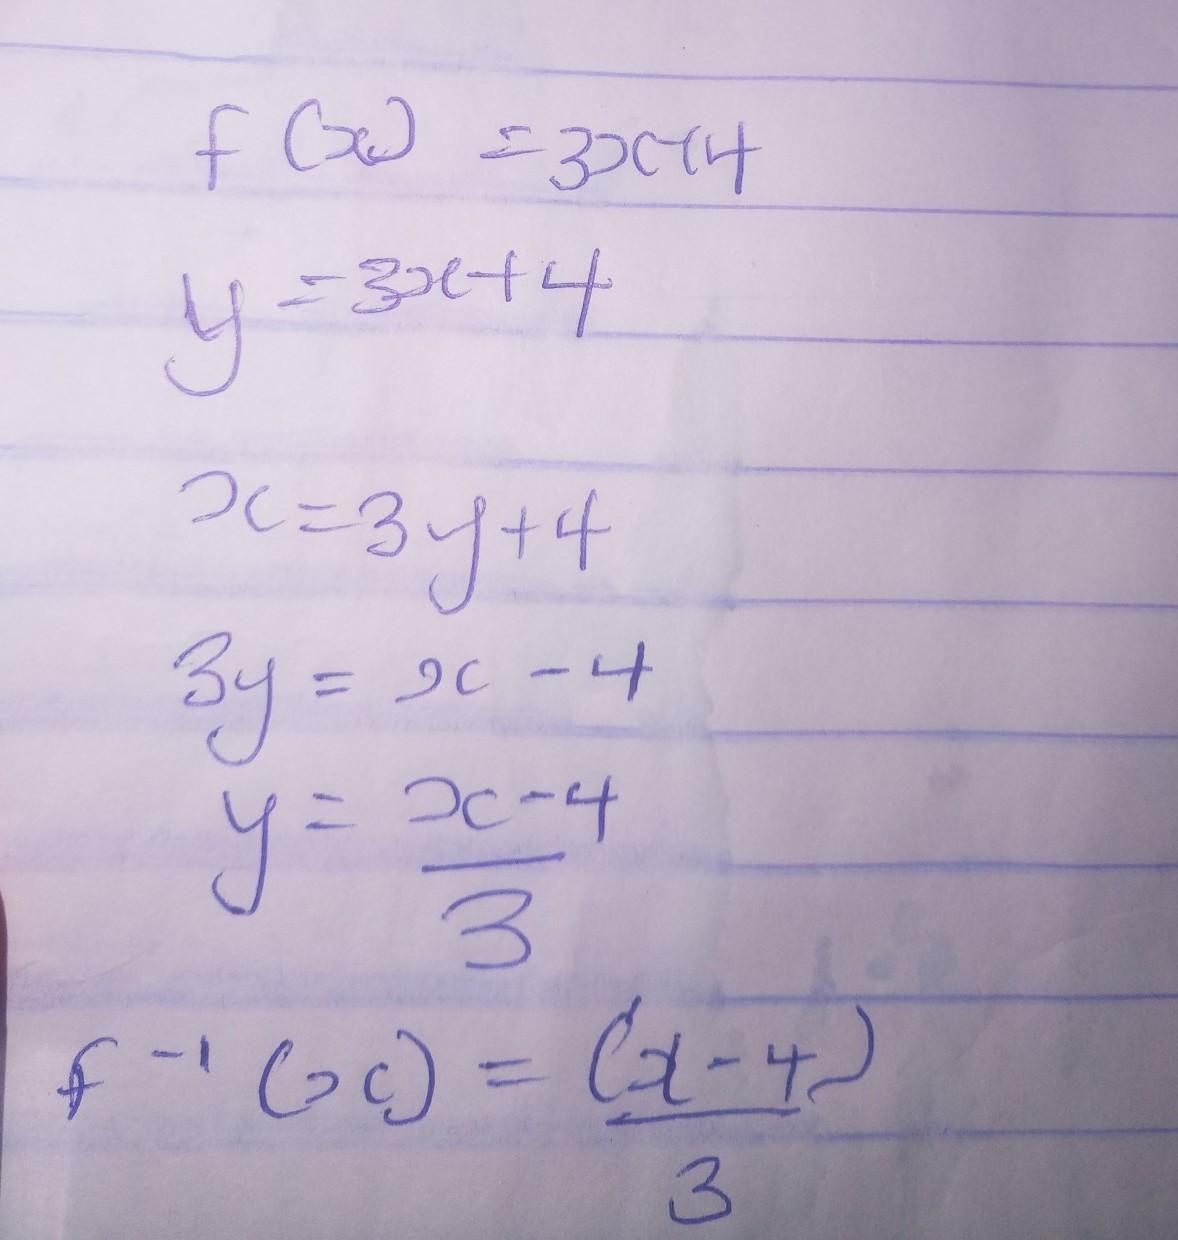 f(x) = 3x+4
y = 3x+4
x = 3y+4
3y = x - 4
y = x - 4
3
f -1 (x) = (x - 4)
3